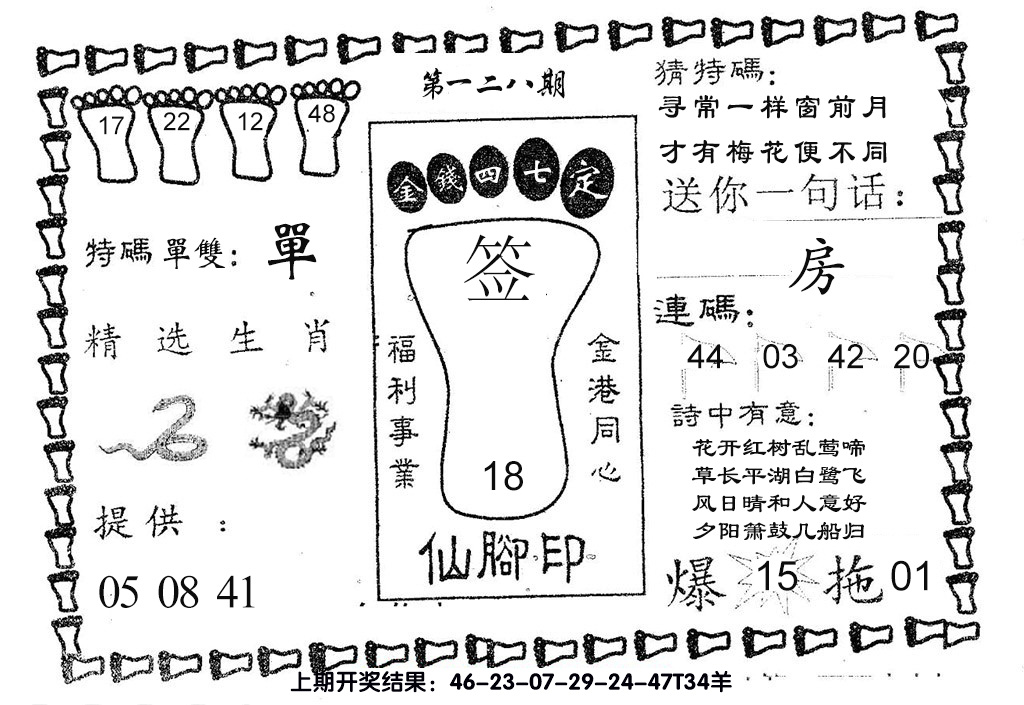 第一二八期
17 22 12 48
特碼單雙：單
精选生肖
提供：
05 08 41
金錢四七定
签
福利事業
金港同心
18
仙腳印
猜特碼：
寻常一样窗前月
才有梅花便不同
送你一句话：
房
連碼：
44 03 42 20
詩中有意：
花开红树乱莺啼
草长平湖白鹭飞
风日晴和人意好
夕阳箫鼓几船归
爆 15 拖 01
上期开奖结果：46-23-07-29-24-47T34羊